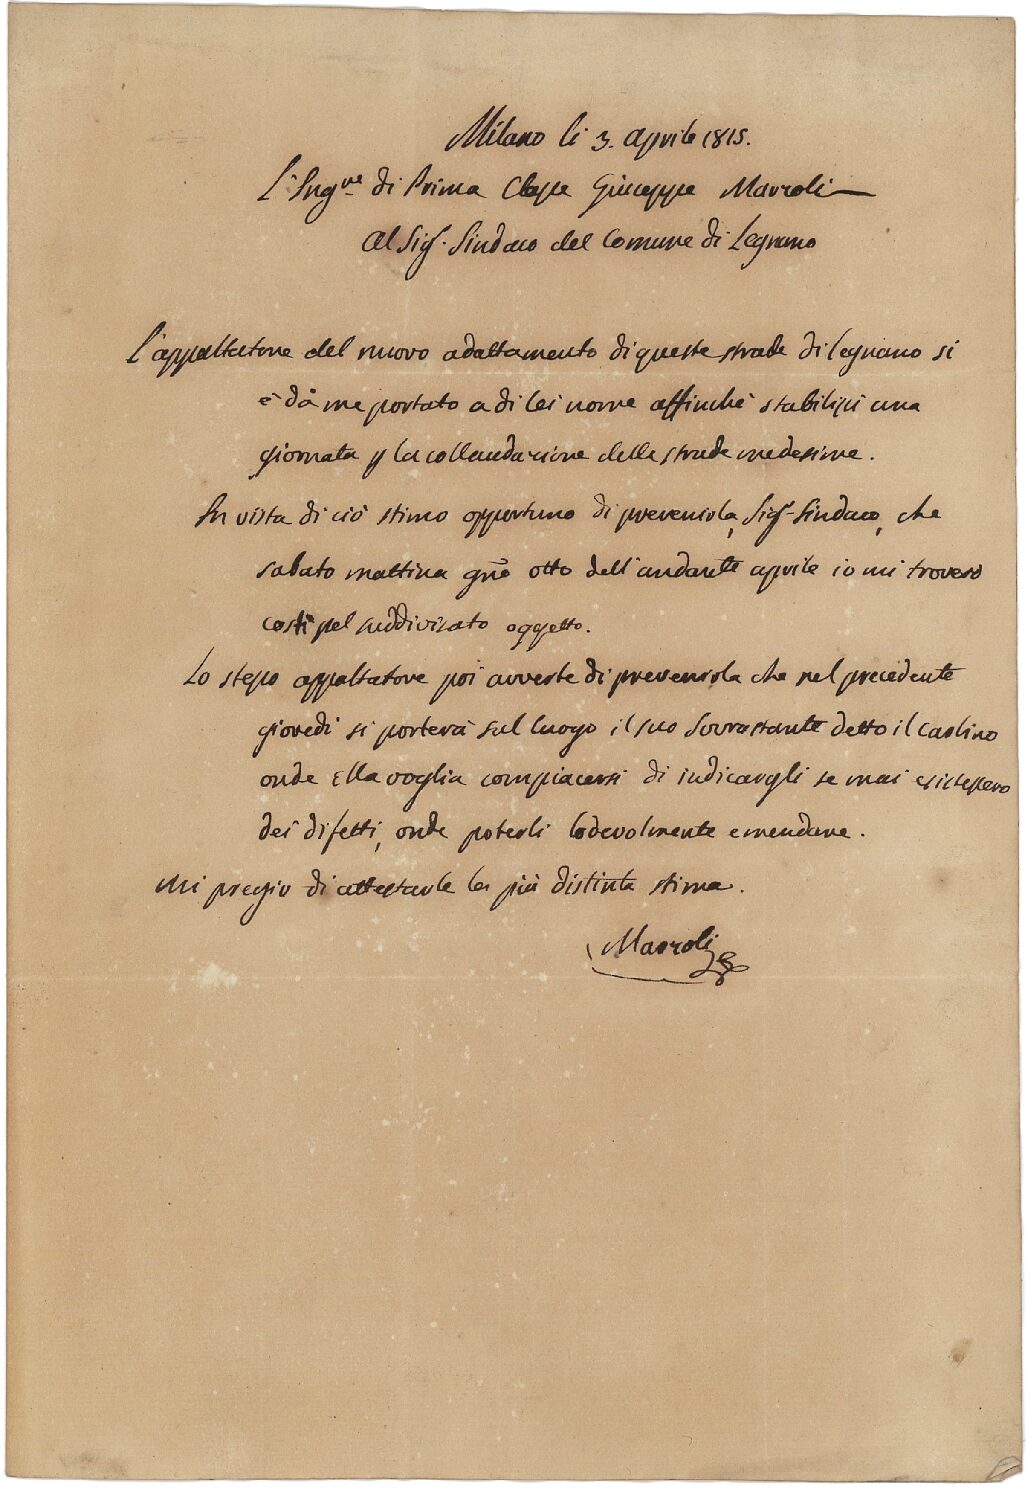 Milano li 3. aprile 1815.
L'Ing.re di Prima Classe Giuseppe Marzoli
Al Sig.r Sindaco del Comune di Legnano
L'appaltatore del nuovo adattamento di queste strade di Legnano si
è da me portato a di lei nome affinchè stabilissi una
giornata p la collaudazione delle strade medesime.
In vista di ciò stimo opportuno di prevenirla, Sig.r Sindaco, che
sabato mattina gno otto dell'andante aprile io mi troverò
costì pel suddivisato oggetto.
Lo stesso appaltatore poi avverte di prevenirla che nel precedente
giovedì si porterà sul luogo il suo Sovrastante detto il Carlino
onde Ella voglia compiacersi di indicargli se mai esistessero
dei difetti, onde poterli lodevolmente emendare.
Mi pregio di attestarle la più distinta stima.
Marzoli